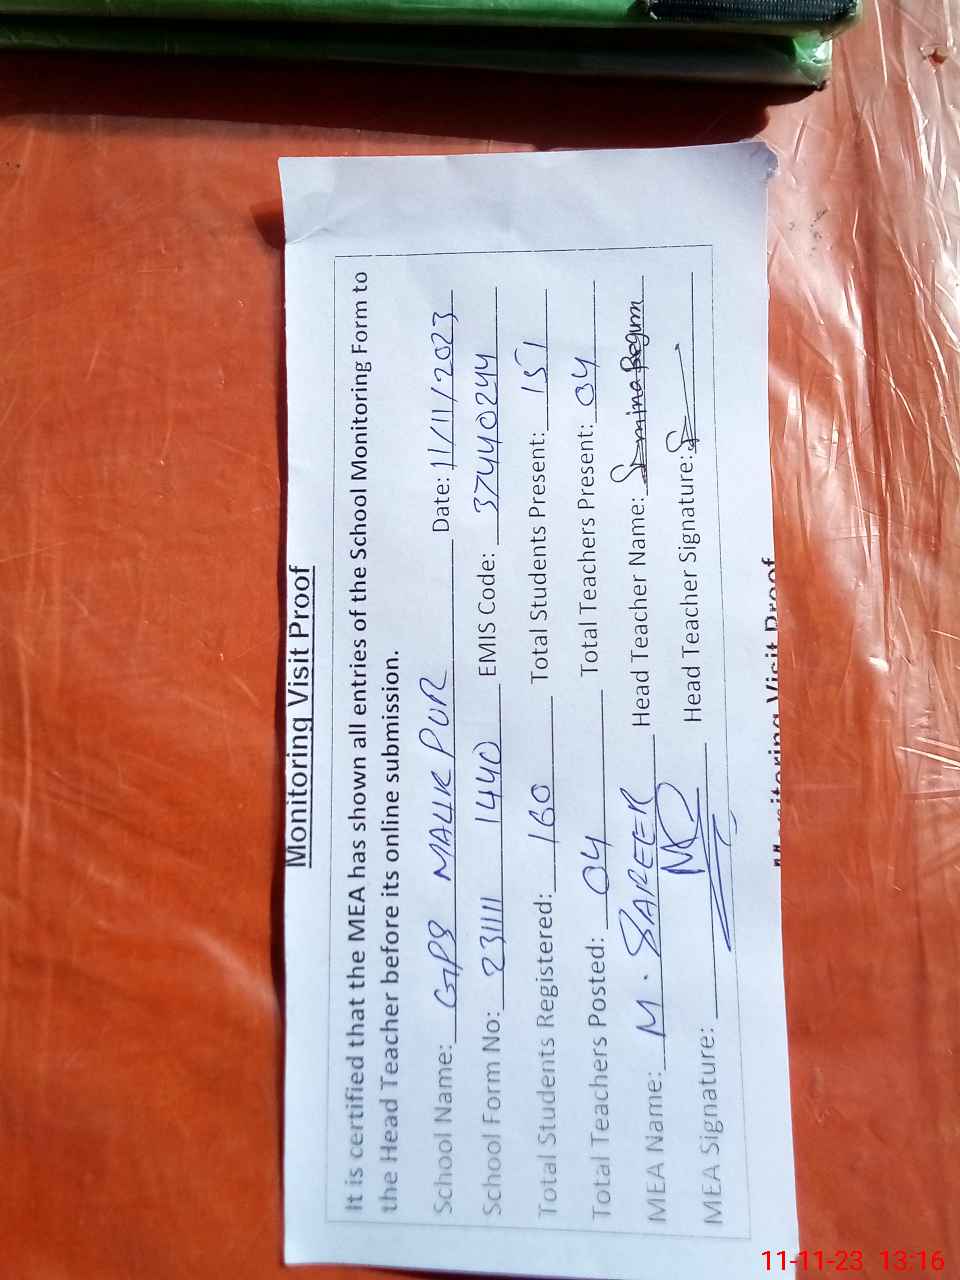 Monitoring Visit Proof
It is certified that the MEA has shown all entries of the School Monitoring Form to
the Head Teacher before its online submission.
School Name: GPS MALIK PUR Date: 11/11/2023
School Form No: 231111 1440 EMIS Code: 37440244
Total Students Registered: 160 Total Students Present: 151
Total Teachers Posted: 04 Total Teachers Present: 04
MEA Name: M. SAFEER Head Teacher Name: Samina Begum
MEA Signature: Head Teacher Signature:
Monitoring Visit Proof
11-11-23 13:16